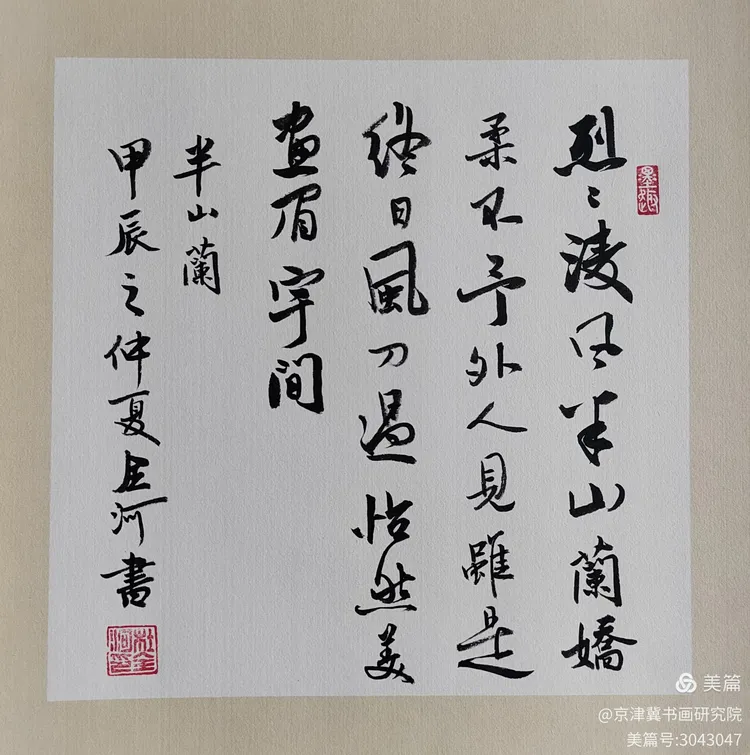 烈〻凌风半山蘭嬌
柔不予外人見雖是
終日風刀過怡然美
画眉宇间
半山蘭
甲辰之仲夏金河書
墨趣
杜金河印
美篇
@京津冀书画研究院
美篇号:3043047